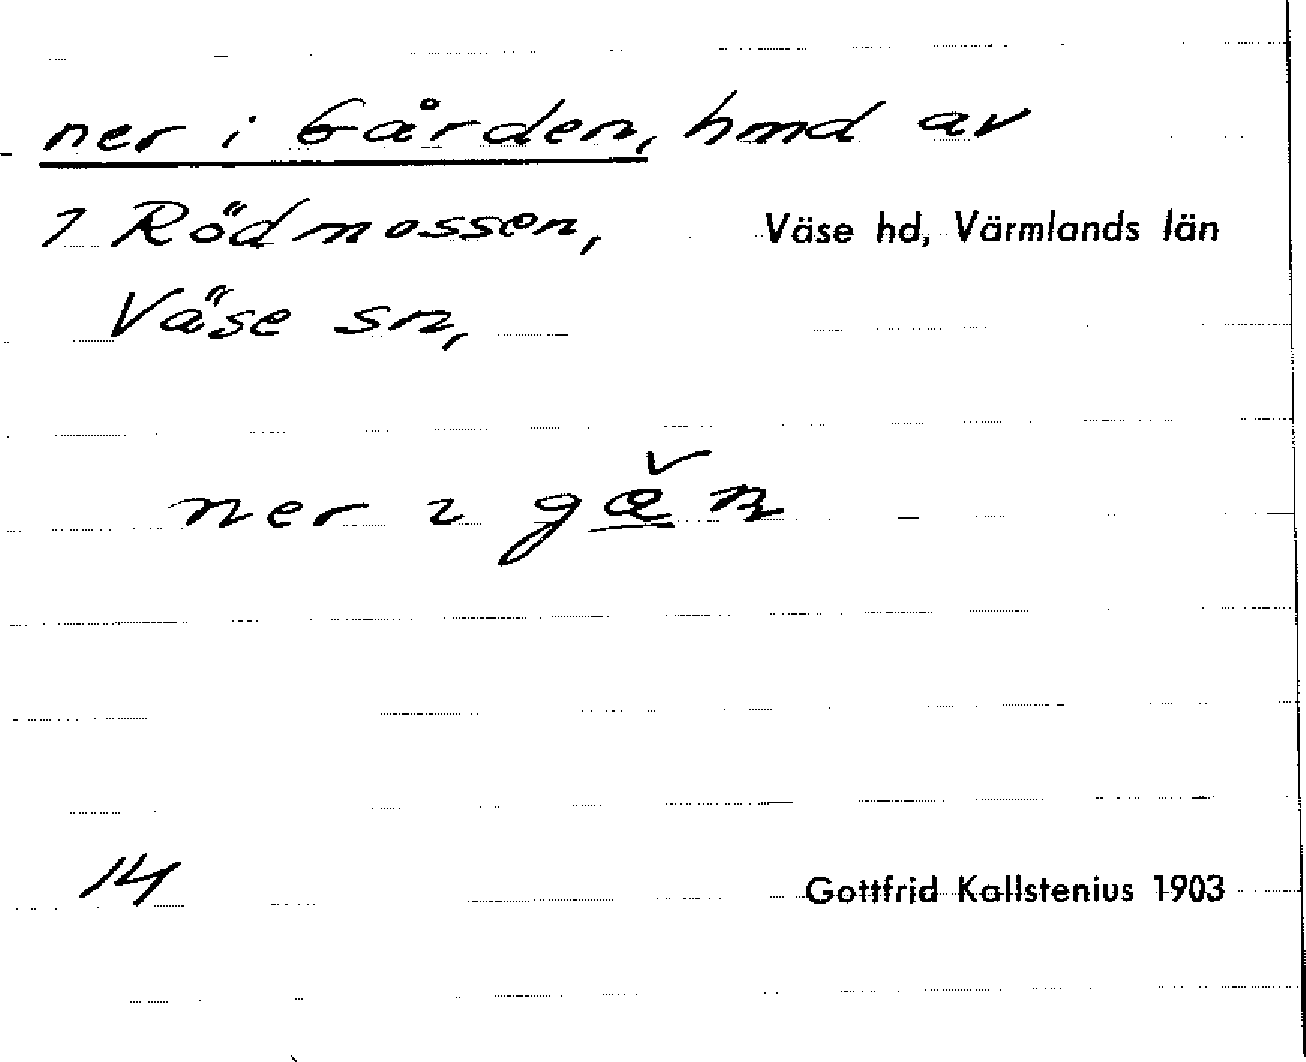 ner i Gården, hmd av
1 Rödmossen, Väse hd, Värmlands län
Väse sn,
ner ɩ
14
Gottfrid Kallstenius 1903